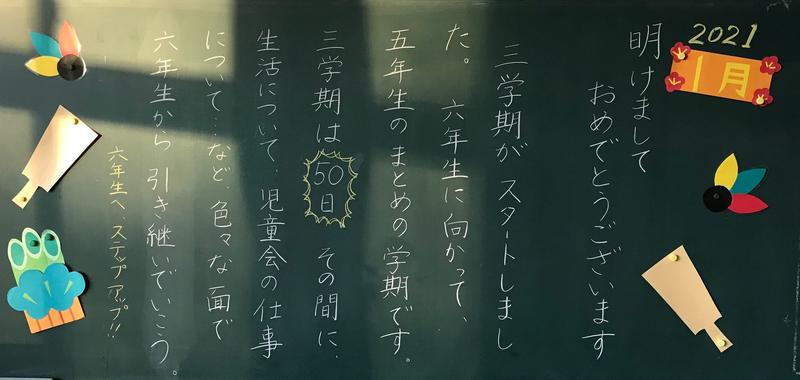 2021
1月
明けまして
おめでとうございます
三学期がスタートしまし
た。六年生に向かって、
五年生のまとめの学期です。
三学期は50日 その間に、
生活について、児童会の仕事
について…など、色々な面で
六年生から引き継いでいこう。
六年生へ、ステップアップ!!